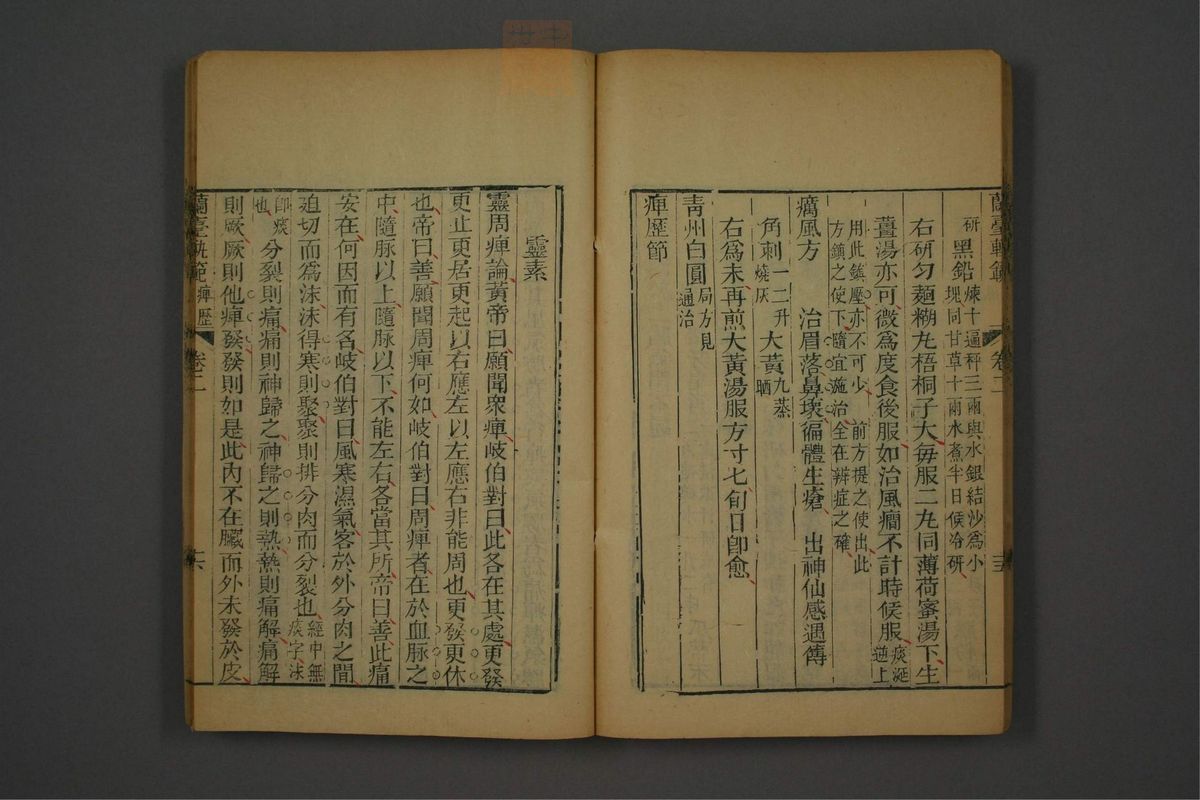 蘭臺軌範 卷二 十五
研 黑鉛煉十遍秤三兩與水銀結沙為小塊同甘草十兩水煮半日候冷研
右研勻麵糊丸梧桐子大每服二丸同薄荷蜜湯下生
薑湯亦可微為度食後服如治風癎不計時候服痰涎逆上
用此鎮壓亦不可少 前方提之使出此方鎮之使下隨宜施治全在辨症之確
癘風方 治眉落鼻壞徧體生瘡 出神仙感遇傳
角刺一二升燒灰 大黃九蒸晒
右為末再煎大黃湯服方寸七旬日卽愈
青州白圓局方見通治
痺歷節
靈素
靈周痺論黃帝曰願聞眾痺岐伯對曰此各在其處更發
更止更居更起以右應左以左應右非能周也更發更休
也帝曰善願聞周痺何如岐伯對曰周痺者在於血脈之
中隨脈以上隨脈以下不能左右各當其所帝曰善此痛
安在何因而有名岐伯對曰風寒濕氣客於外分肉之間
迫切而為沫沫得寒則聚聚則排分肉而分裂也經中無痰字沫
卽痰也 分裂則痛痛則神歸之神歸之則熱熱則痛解痛解
則厥厥則他痺發發則如是此內不在臟而外未發於皮
蘭臺軌範 痺歷 卷二 十六